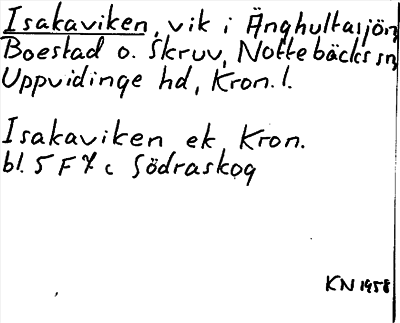 Isakaviken, vik i Änghultasjön,
Boestad o. Skruv, Nottebäcks sn,
Uppvidinge hd, Kron. l.
Isakaviken ek Kron.
bl. 5 F 7 c Södraskog
KN 1958